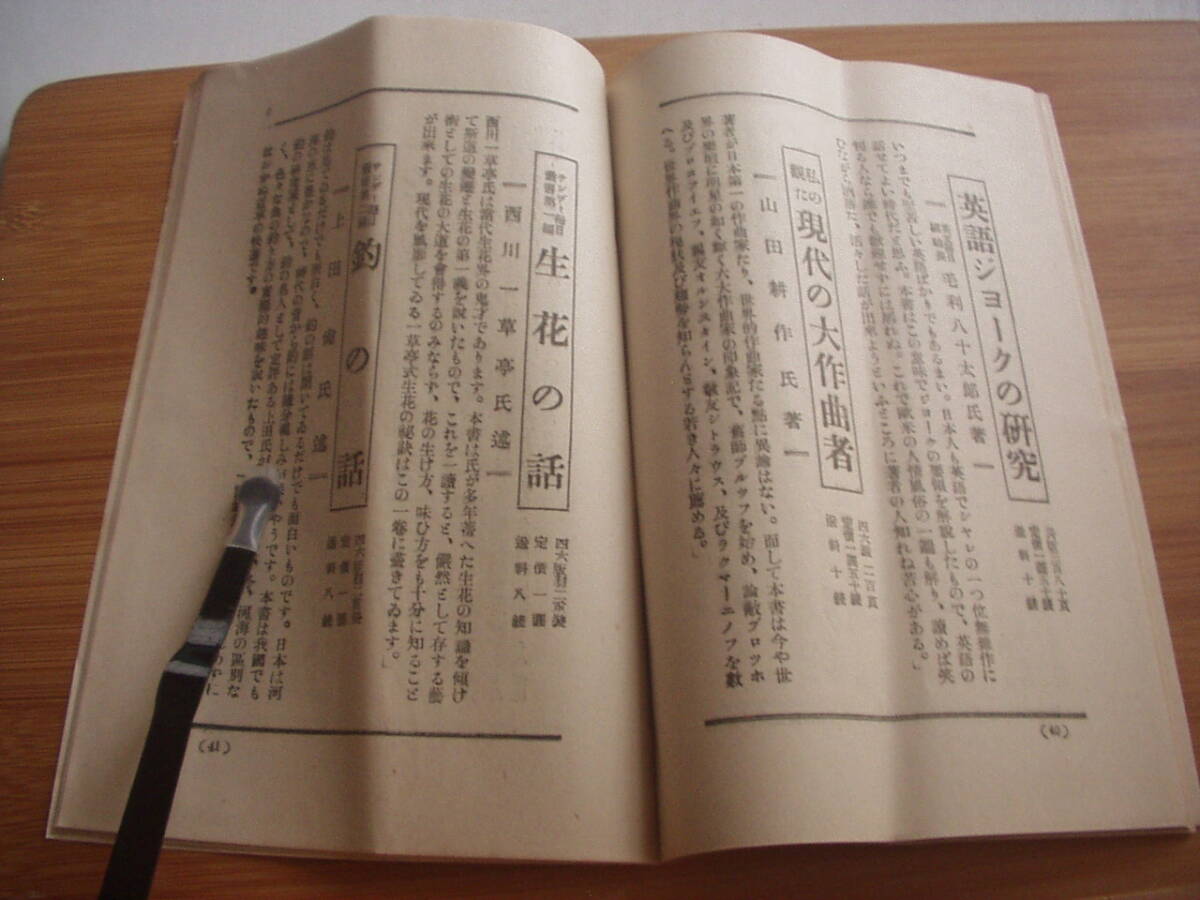 英語ジョークの研究
毛利八十太郎氏著
いつまでも堅苦しい英語ばかりでもあるまい。日本人も英語でシヤレの一つ位無雜作に
話せてよい時代だと思ふ。本書はこの意味でジョークの要領を解說したもので、英語の
判る人なら誰でも歡迎せずには居れぬ。これで歐米の人情風俗の一端も解り、讀めば英
活々した話が出來ようといふところに著者の人知れぬ苦心がある。」
定價一圓五十錢
送料十錢
(40)
私の觀た現代の大作曲者
山田耕作氏著
四六版二百頁
定價一圓五十錢
送料十錢
著者が日本第一の作曲家たり、世界的作曲家たる點に異論はない。而して本書は今や世
界の樂壇に明星の如く輝く大作曲家の印象記で、舊師ブルツフを始め、論敵ブロツホ
及びプロコイエフ、親友オルンスタイン、敬友シトラウス、及びラクマーニノフを數
へる。世界作曲界の現狀及び趨勢を知らんとする若き人々に薦める。」
サンデー毎日
叢書第一編
生花の話
西川一草亭氏述
定價一圓
送料八錢
西川一草亭氏は當代生花界の鬼才であります。本書は氏が多年蓄へた生花の知識を傾け
て斯道の變遷と生花の第一義を說いたもので、これを一讀すると、儼然として存する藝
術としての生花の大道を會得するのみならず、花の生け方、味ひ方をも十分に知ること
が出來ます。現代を風靡してゐる一草亭式生花の祕訣はこの一卷に盡きてゐます。」
サンデー毎日
釣の話
上田尙氏述
定價一圓
送料八錢
釣は見てゐるだけでも面白く、釣の話は聞いてゐるだけでも面白いものです。日本は河
やうです。本書は我國でも
釣の研究家として、釣の名人として定評ある上田氏が
河海の區別な
く、色々な魚の釣り方の實際
を說いたもので、
(41)